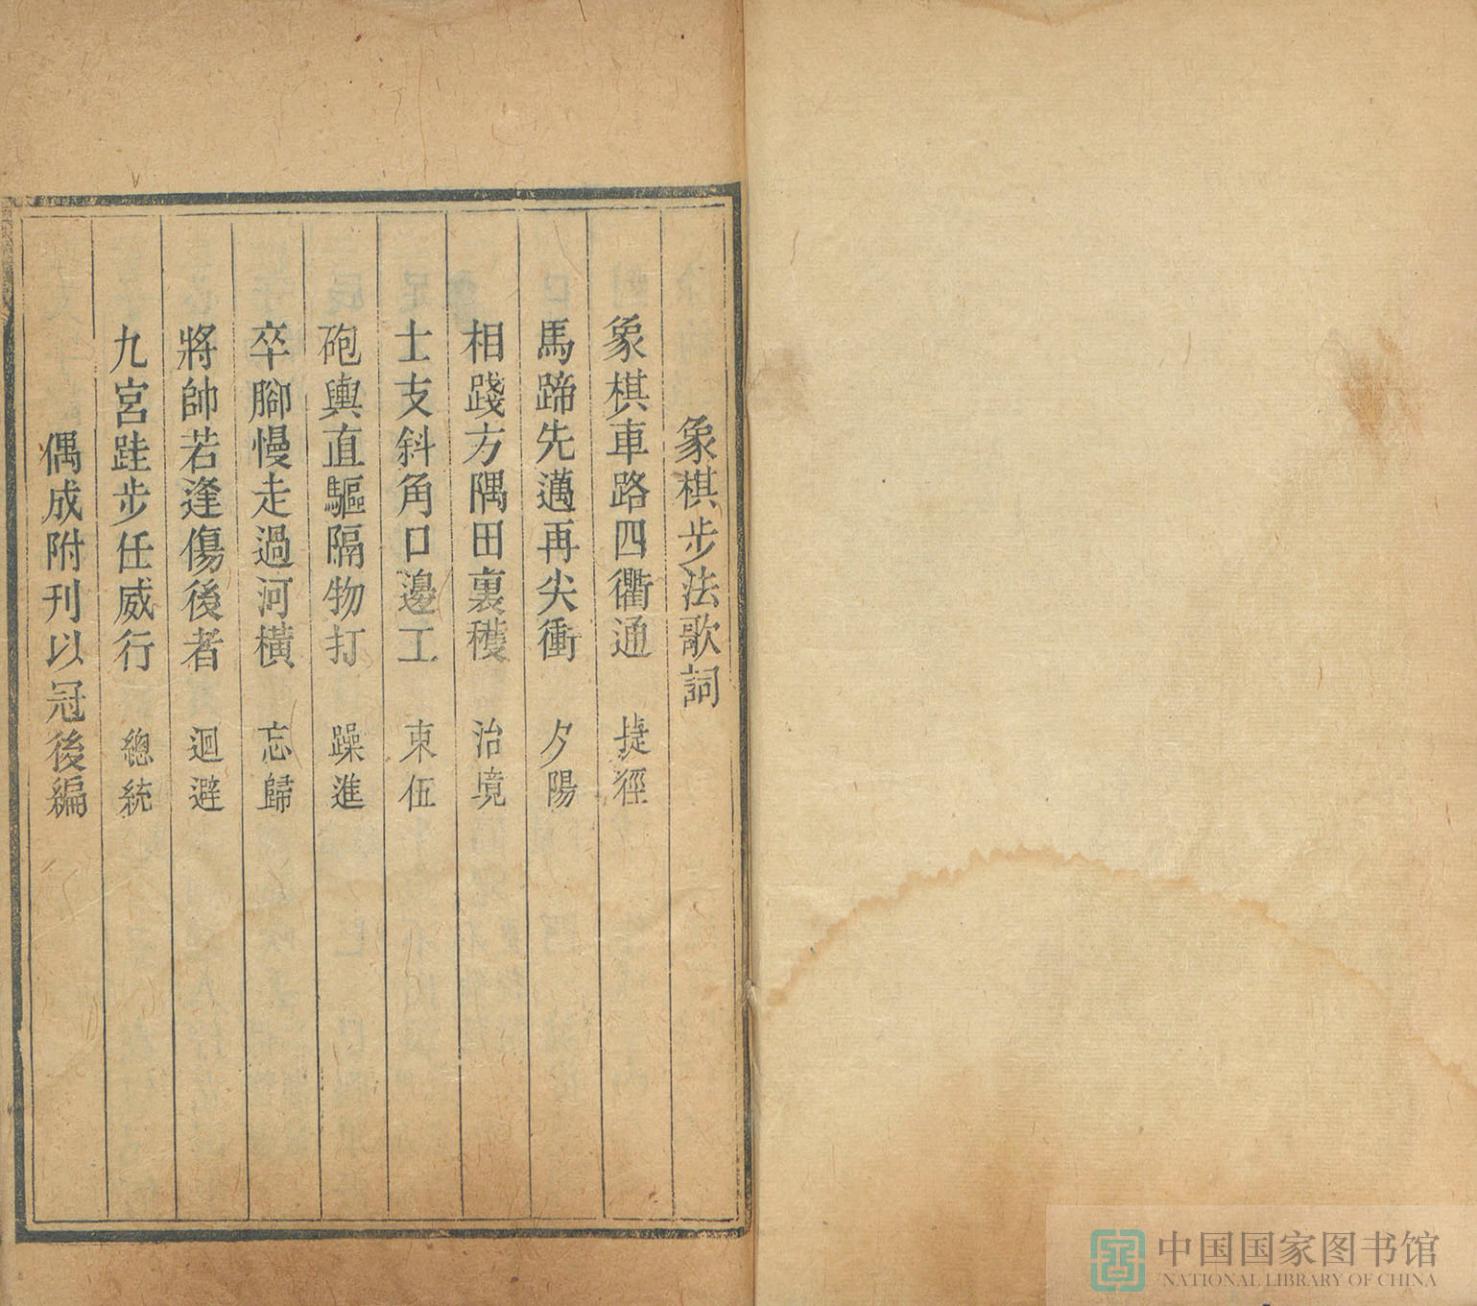 象棋步法歌詞
象棋車路四衢通 捷徑
馬蹄先邁再尖衝 夕陽
相踐方隅田裏穫 治境
士支斜角口邊工 東伍
砲輿直驅隔物打 躁進
卒腳慢走過河橫 忘歸
將帥若逢傷後者 迴避
九宮跬步任威行 總統
偶成附刊以冠後編
中国国家图书馆
NATIONAL LIBRARY OF CHINA